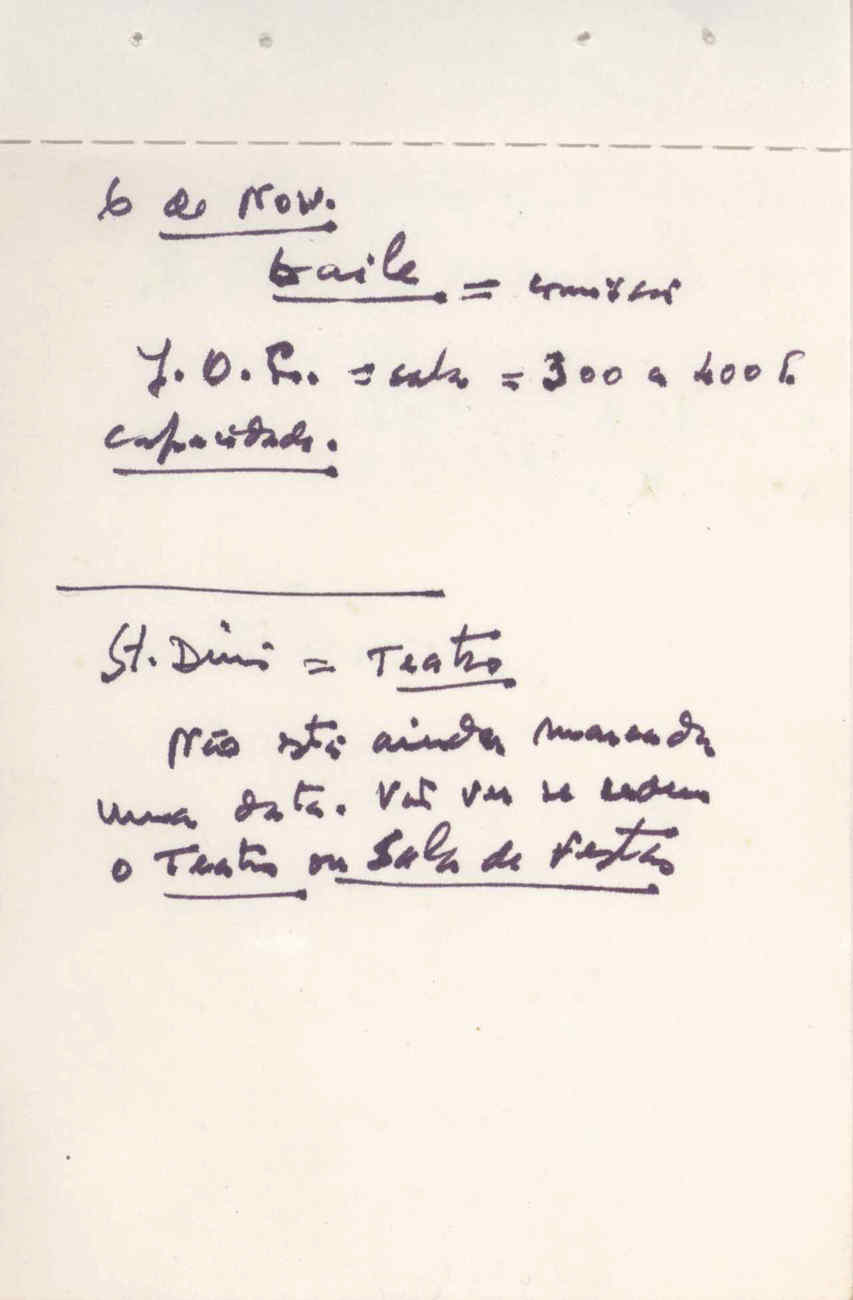 6 de Nov.
baile = comissão
J. O. C. = sala = 300 a 400 L.
capacidade.
St. Dinis = Teatro
Não está ainda marcada
uma data. Vai ver se cedem
o Teatro ou Sala de Festas